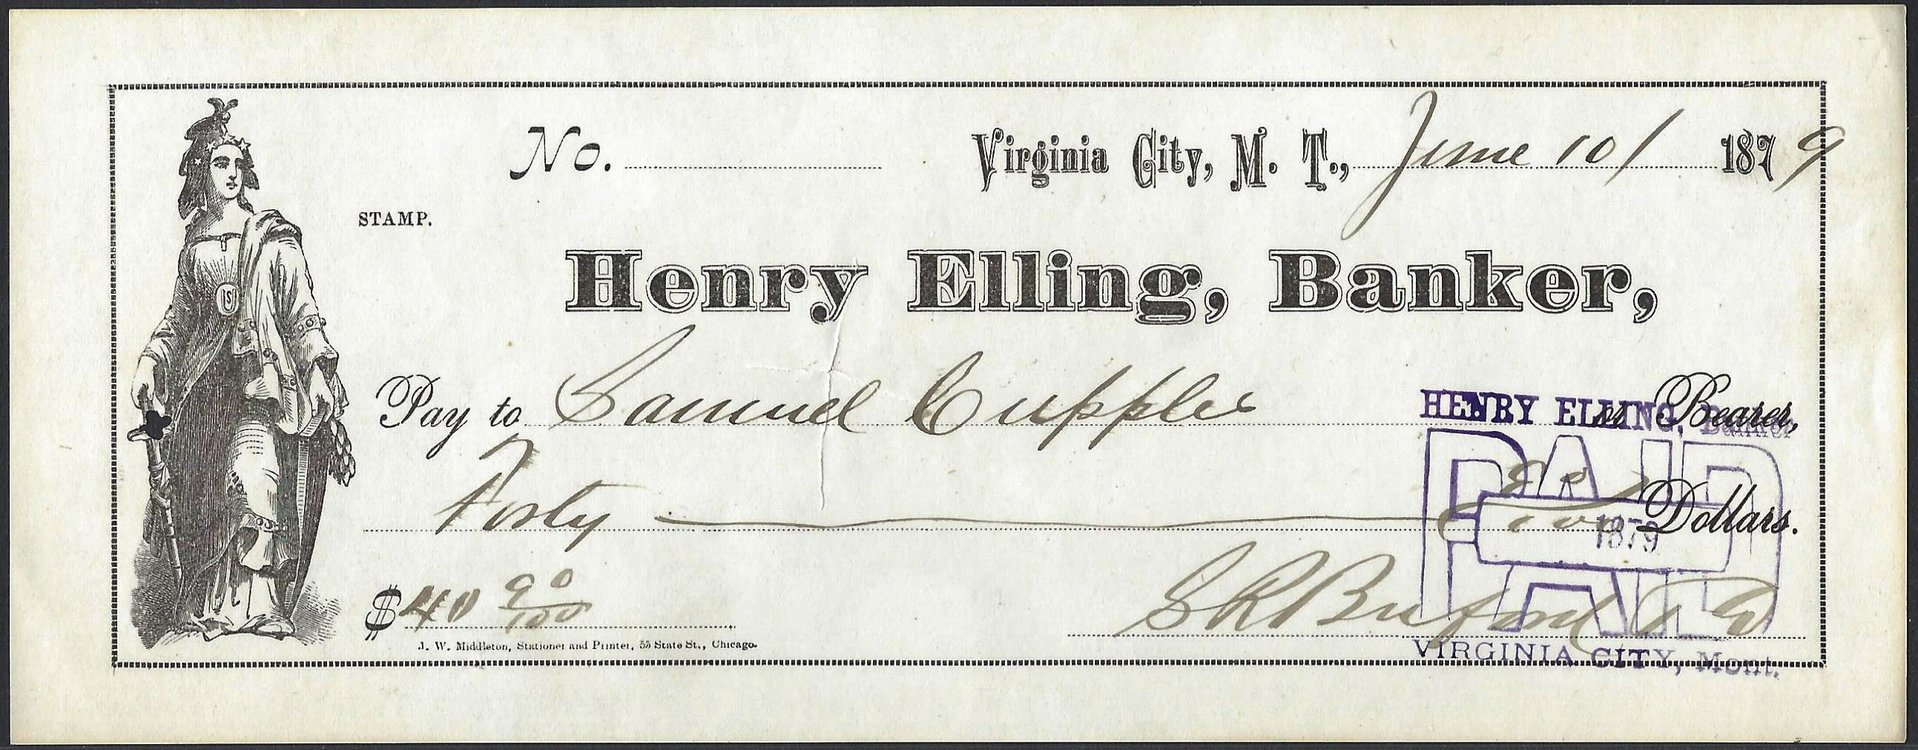 No.
Virginia City, M. T., June 10 / 1879
STAMP.
US
Henry Elling, Banker,
Pay to Samuel Cupples or Bearer,
Forty 90/100 Dollars.
$40 90/100
S R Buford & Co
J. W. Middleton, Stationer and Printer, 55 State St., Chicago.
HENRY ELLING, Banker
PAID
1879
VIRGINIA CITY, Mont.